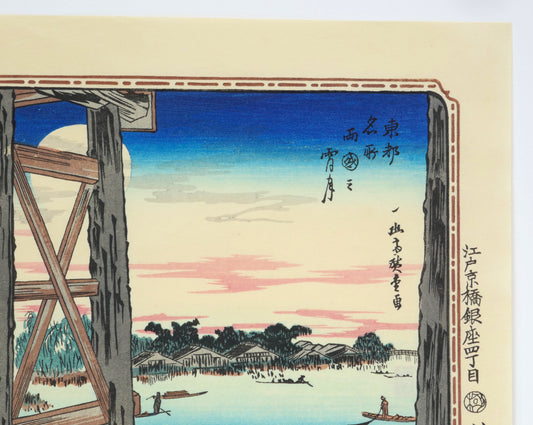 東都
名所
両國之
宵月
一幽斎廣重画
江戸京橋銀座四丁目